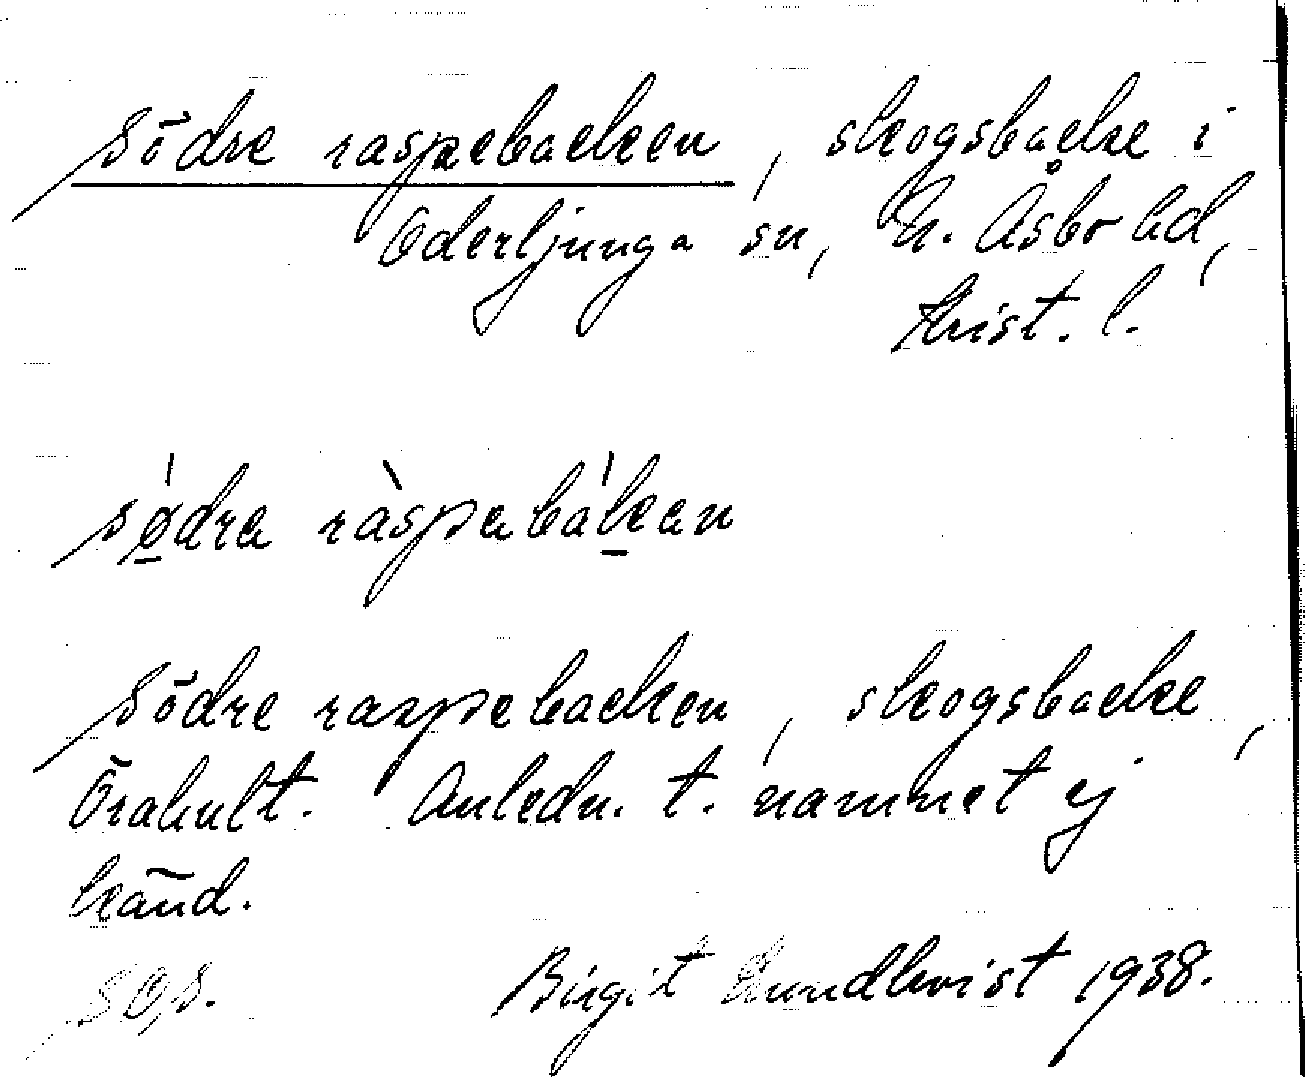 Södre raspebacken, skogsbacke i
Oderljunga sn, N. Åsbo hd,
Krist. l.
södra ràspabákan
Södre raspebacken, skogsbacke,
Örahult. Anledn. t. namnet ej
känd.
Birgit Lundkvist 1938.